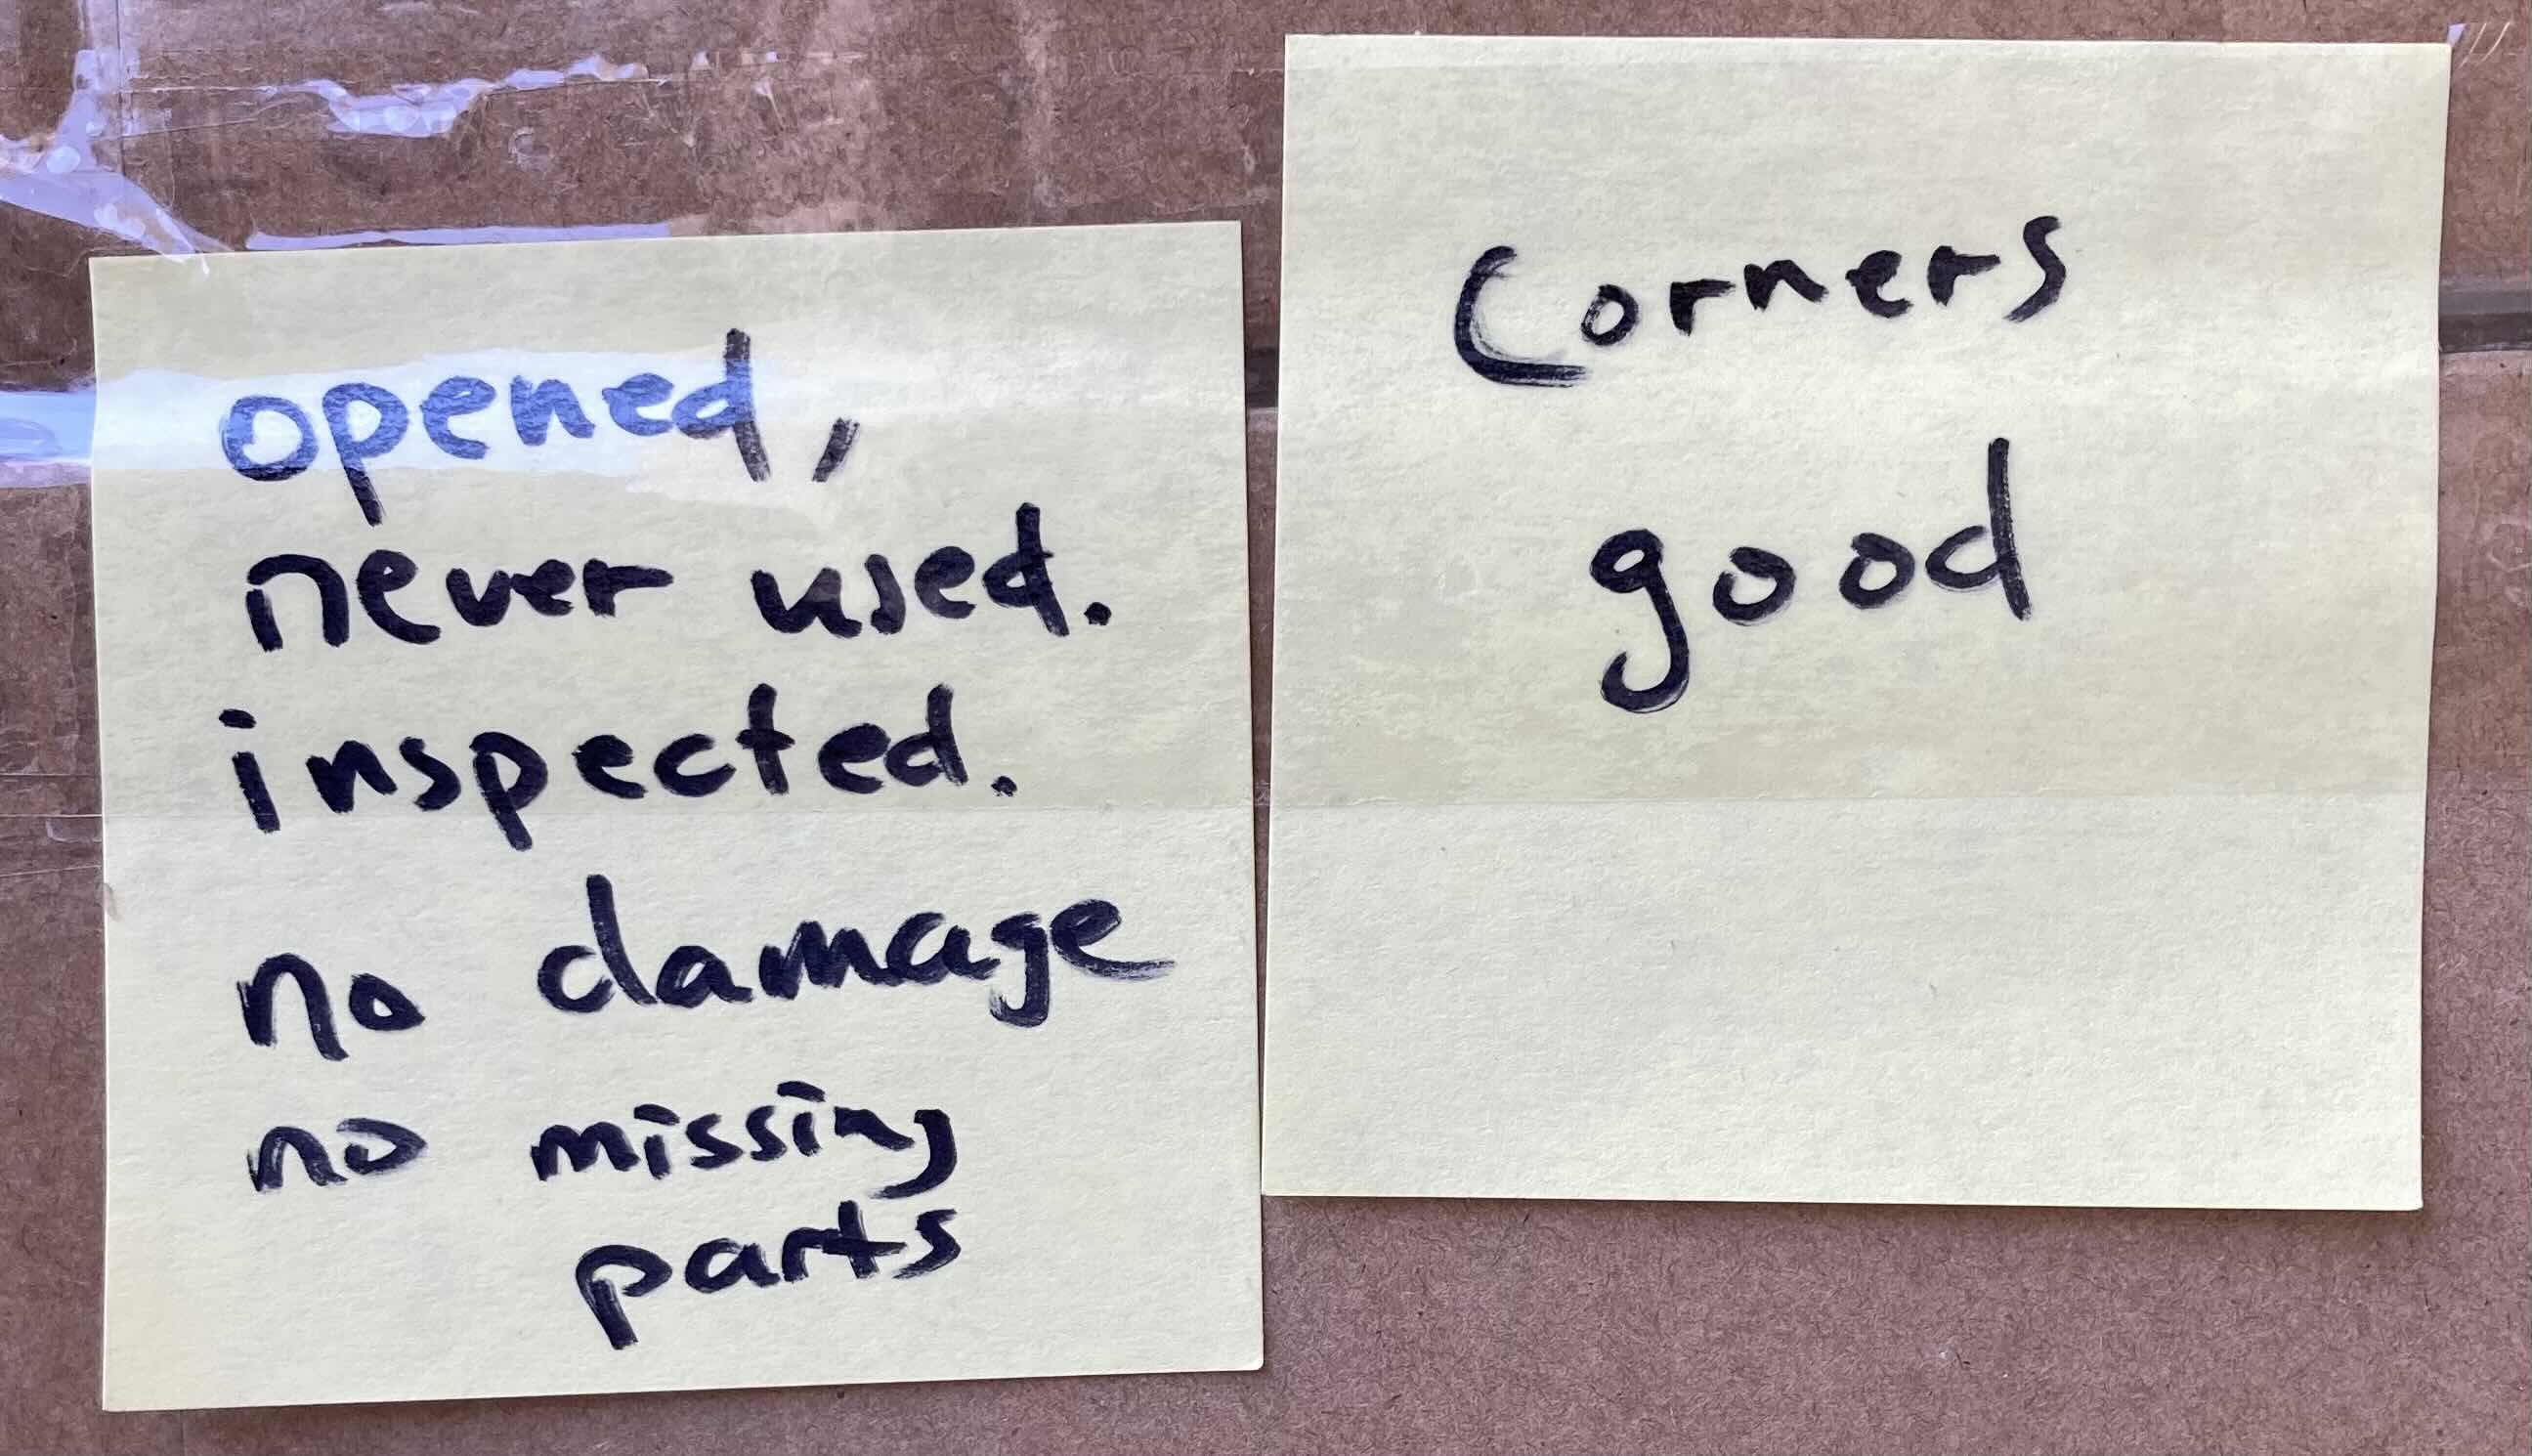 opened,
never used.
inspected.
no damage
no missing
parts
Corners
good